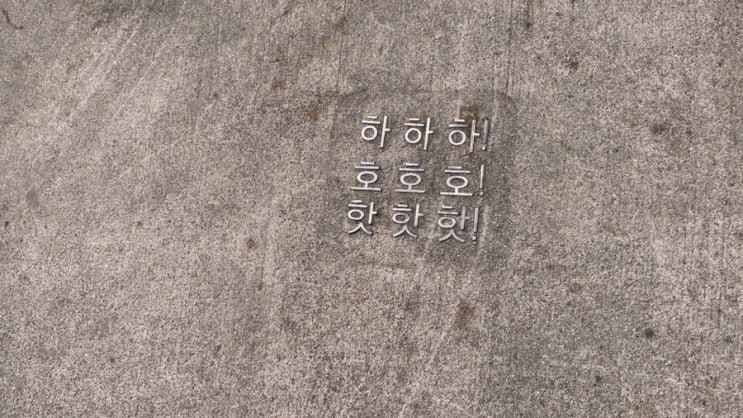 하 하 하!
호 호 호!
핫 핫 헛!